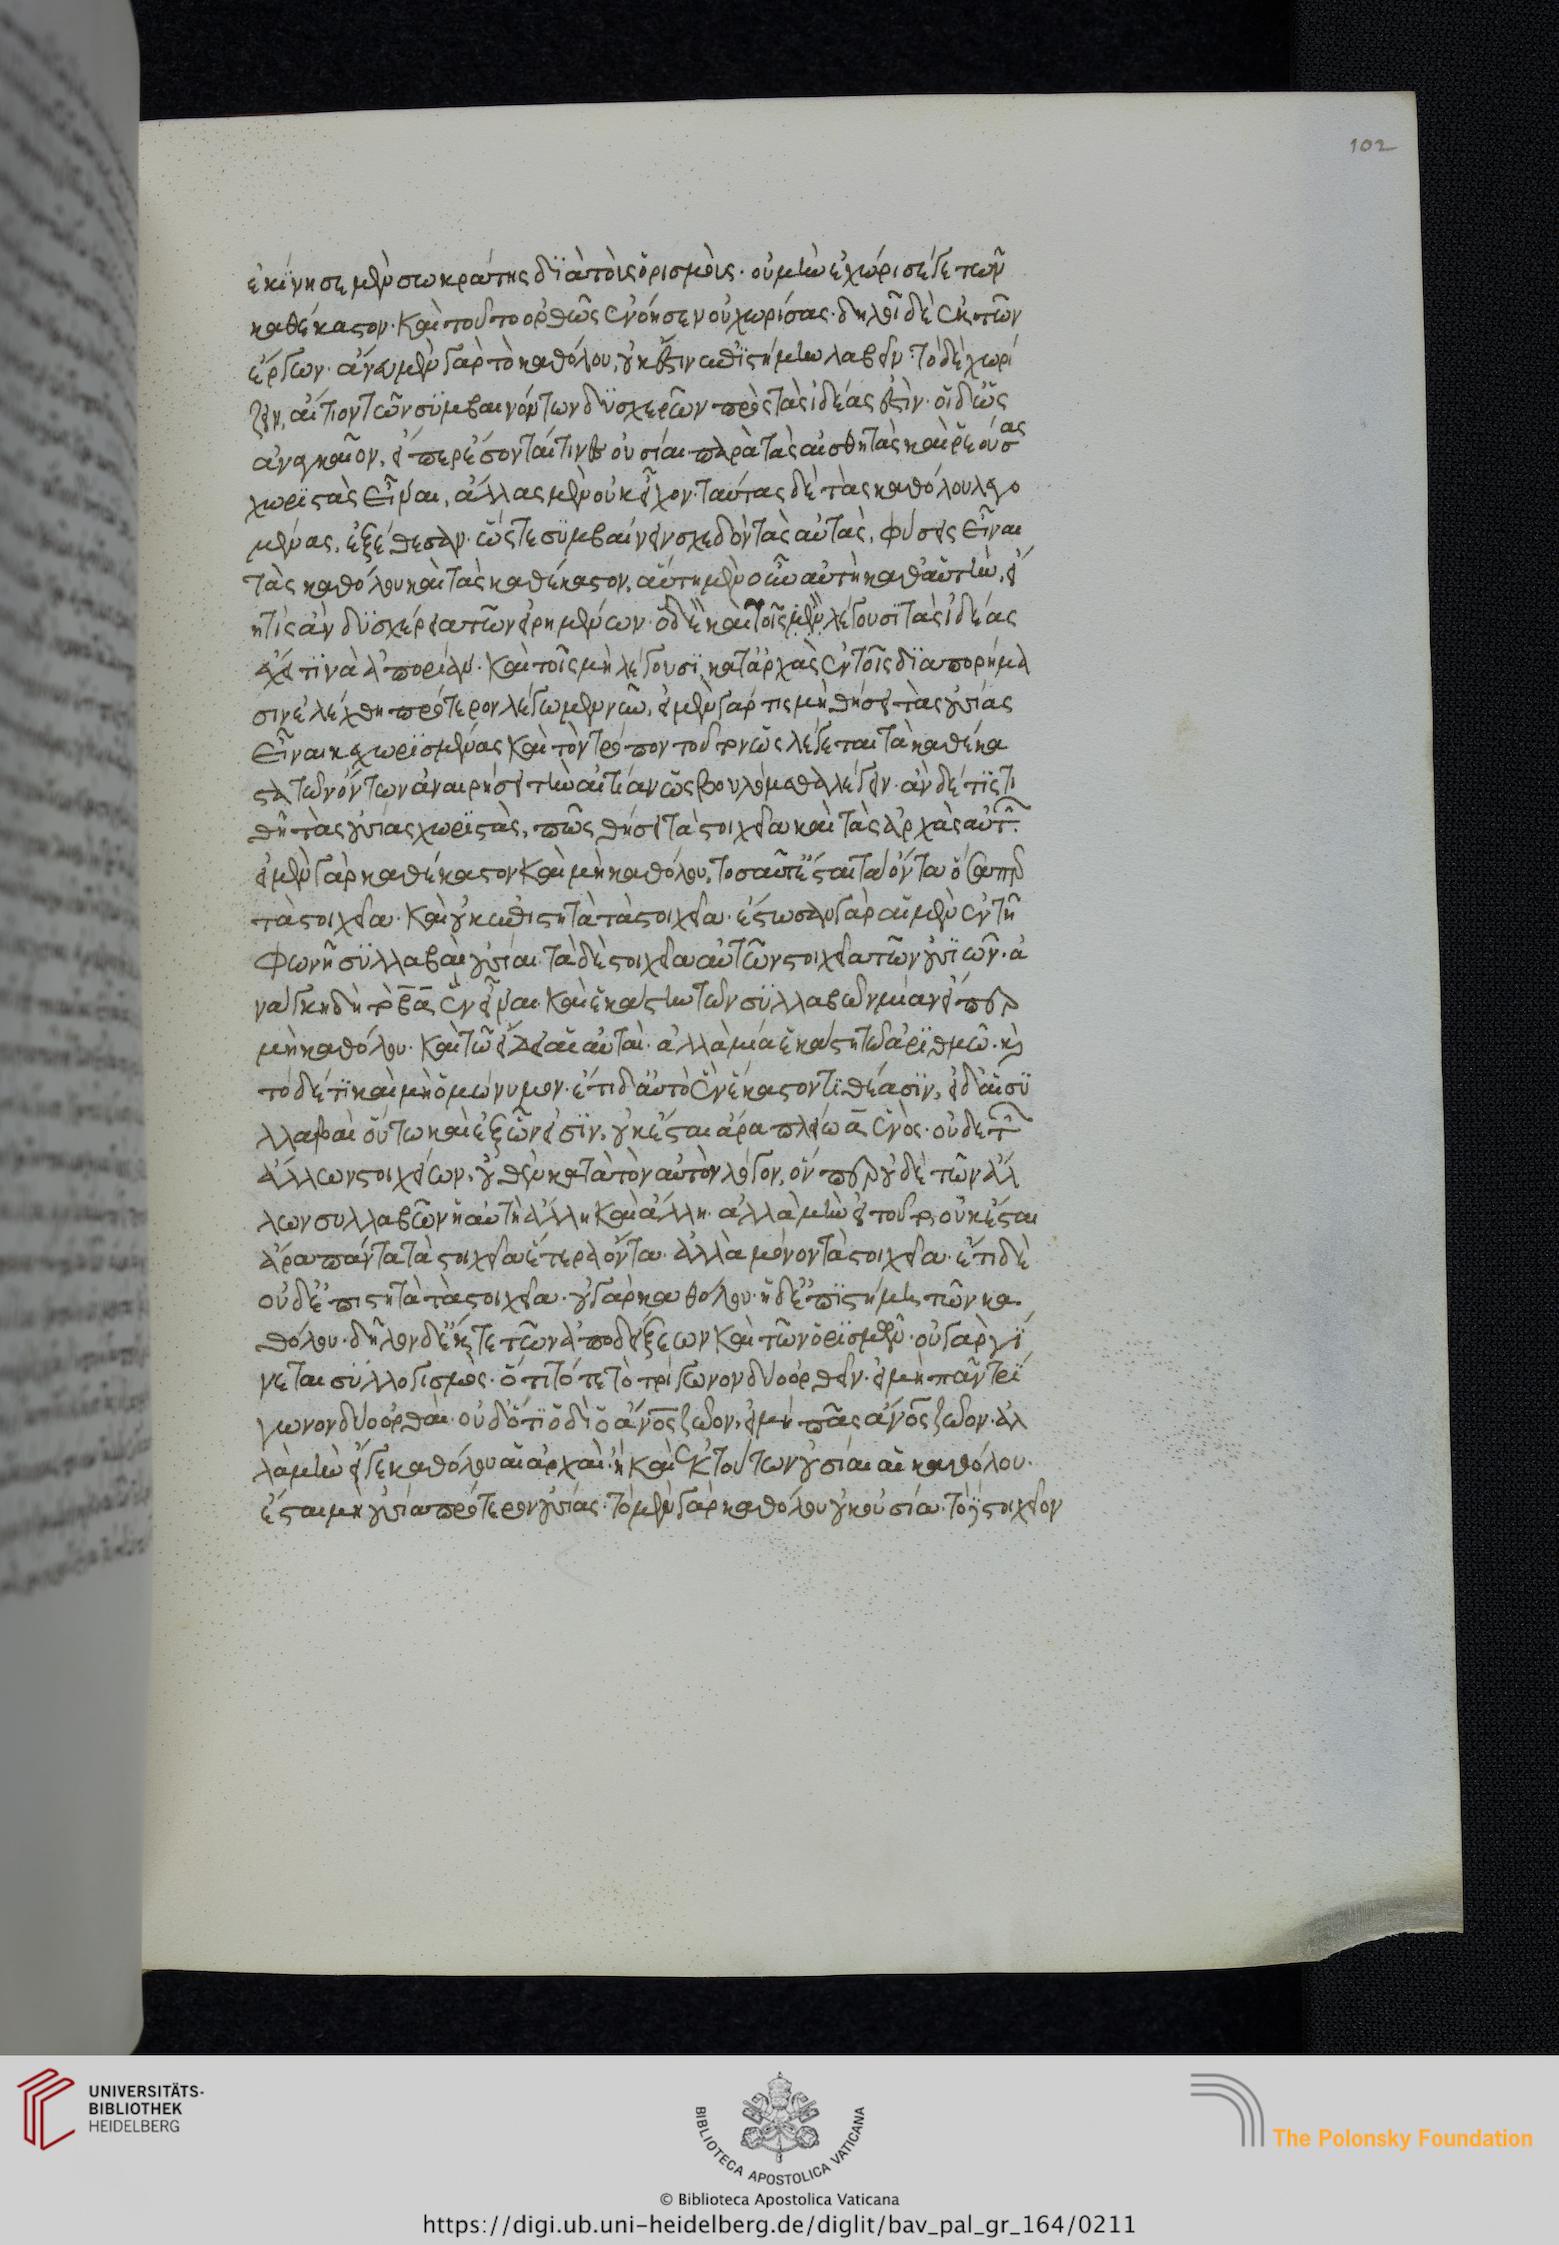 ἐκίνησε μὲν σωκράτης διὰ τοὺς ὁρισμοὺς· οὐ μὴν ἐχώρισέ γε τῶν
καθέκαστον· καὶ τοῦτο ὀρθῶς ἐνόησεν οὐ χωρίσας· δηλοῖ δὲ ἐκ τῶν
ἔργων· ἄνευ μὲν γὰρ τὸ καθόλου, οὐκ ἔστιν ἐπιστήμην λαβεῖν· τὸ δὲ χωρί
ζειν, αἴτιον τῶν συμβαινόντων δυσχερῶν πρὸς τὰς ἰδέας ἐστὶν· οἱ δ' ὡς
ἀναγκαῖον, εἴπερ ἔσονταί τινες οὐσίαι παρὰ τὰς αἰσθητὰς καὶ ῥεούσας
χωριστὰς εἶναι, ἄλλας μὲν οὐκ εἶχον· ταύτας δὲ τὰς καθόλου λεγο
μένας, ἐξέθεσαν· ὥστε συμβαίνειν σχεδὸν τὰς αὐτὰς, φύσεις εἶναι
τὰς καθόλου καὶ τὰς καθέκαστον, αὕτη μὲν οὖν αὐτὴ καθ' αὑτὴν, εἴ
η τὶς ἂν δυσχέρεια τῶν εἰρημένων· ὃ δὲ καὶ τοῖς μὲν λέγουσι τὰς ἰδέας
ἔχει τινὰ ἀπορίαν· καὶ τοῖς μὴ λέγουσι κατ' ἀρχὰς ἐν τοῖς διαπορήμα
σιν ἐλέχθη πρότερον λέγωμεν νῦν, εἰ μὲν γάρ τις μὴ θήσει τὰς οὐσίας
εἶναι κεχωρισμένας καὶ τὸν τρόπον τοῦτον ὡς λέγεται τὰ καθέκα
στα τῶν ὄντων ἀναιρήσει τὴν αἰτίαν ὡς βουλόμεθα λέγειν· ἂν δέ τις τι
θῆ τὰς οὐσίας χωριστὰς, πῶς θήσει τὰ στοιχεῖα καὶ τὰς ἀρχὰς αὐτῶν·
εἰ μὲν γὰρ καθέκαστον καὶ μὴ καθόλου, τοσαῦτ' ἔσται τὰ ὄντα ὅσαπερ
τὰ στοιχεῖα· καὶ οὐκ ἐπιστητὰ τὰ στοιχεῖα· ἔστωσαν γὰρ αἱ μὲν ἐν τῆ
φωνῆ συλλαβαὶ οὐσίαι· τὰ δὲ στοιχεῖα αὐτῶν στοιχεῖα τῶν οὐσιῶν· ἀ
νάγκη δὴ τὸ βα ἓν εἶναι· καὶ ἑκάστην τῶν συλλαβῶν μίαν εἴπερ
μὴ καθόλου· καὶ τῶ εἴδει αἱ αὐταὶ· ἀλλὰ μία ἑκάστη τῶ ἀριθμῶ· καὶ
τόδέ τι καὶ μὴ ὁμώνυμον· ἔτι δ' αὐτὸ ὃ ἓν ἕκαστον τιθέασιν, εἰ δ' αἱ συ
λλαβαὶ οὕτω καὶ ἐξ ὧν εἰσὶν, οὐκ ἔσται ἄρα πλείω α ἑνὸς· οὐδὲ τῶν
ἄλλων στοιχείων, οὐθὲν κατὰ τὸν αὐτὸν λόγον, ὅνπερ οὐδὲ τῶν ἄλ
λων συλλαβῶν ἡ αὐτὴ ἄλλη καὶ ἄλλη· ἀλλὰ μὴν εἰ τοῦτο, οὐκ ἔσται
ἄρα πάντα τὰ στοιχεῖα ἕτερα ὄντα· ἀλλὰ μόνον τὰ στοιχεῖα· ἔτι δὲ
οὐδ' ἐπιστητὰ τὰ στοιχεῖα· οὐ γὰρ καθόλου· ἡ δ' ἐπιστήμη τῶν κα
θόλου· δῆλον δ' ἔκ τε τῶν ἀποδείξεων καὶ τῶν ὁρισμῶν· οὐ γὰρ γί
νεται συλλογισμὸς· ὅτι τό τε τὸ τρίγωνον δύο ὀρθαῖν· εἰ μὴ πᾶν τρί
γωνον δύο ὀρθαὶ· οὐδ' ὅτι ὁδὶ ὁ ἄνος ζῶον, εἰ μὴ πᾶς ἄνος ζῶον· ἀλ
λὰ μὴν εἴ γε καθόλου αἱ ἀρχαὶ· ἢ καὶ ἐκ τούτων οὐσίαι αἱ καθόλου·
ἔσται μὴ οὐσία πρότερον οὐσίας· τὸ μὲν γὰρ καθόλου οὐκ οὐσία· τὸ στοιχεῖον
102
UNIVERSITÄTS-
BIBLIOTHEK
HEIDELBERG
BIBLIOTECA APOSTOLICA VATICANA
The Polonsky Foundation
© Biblioteca Apostolica Vaticana
https://digi.ub.uni-heidelberg.de/diglit/bav_pal_gr_164/0211